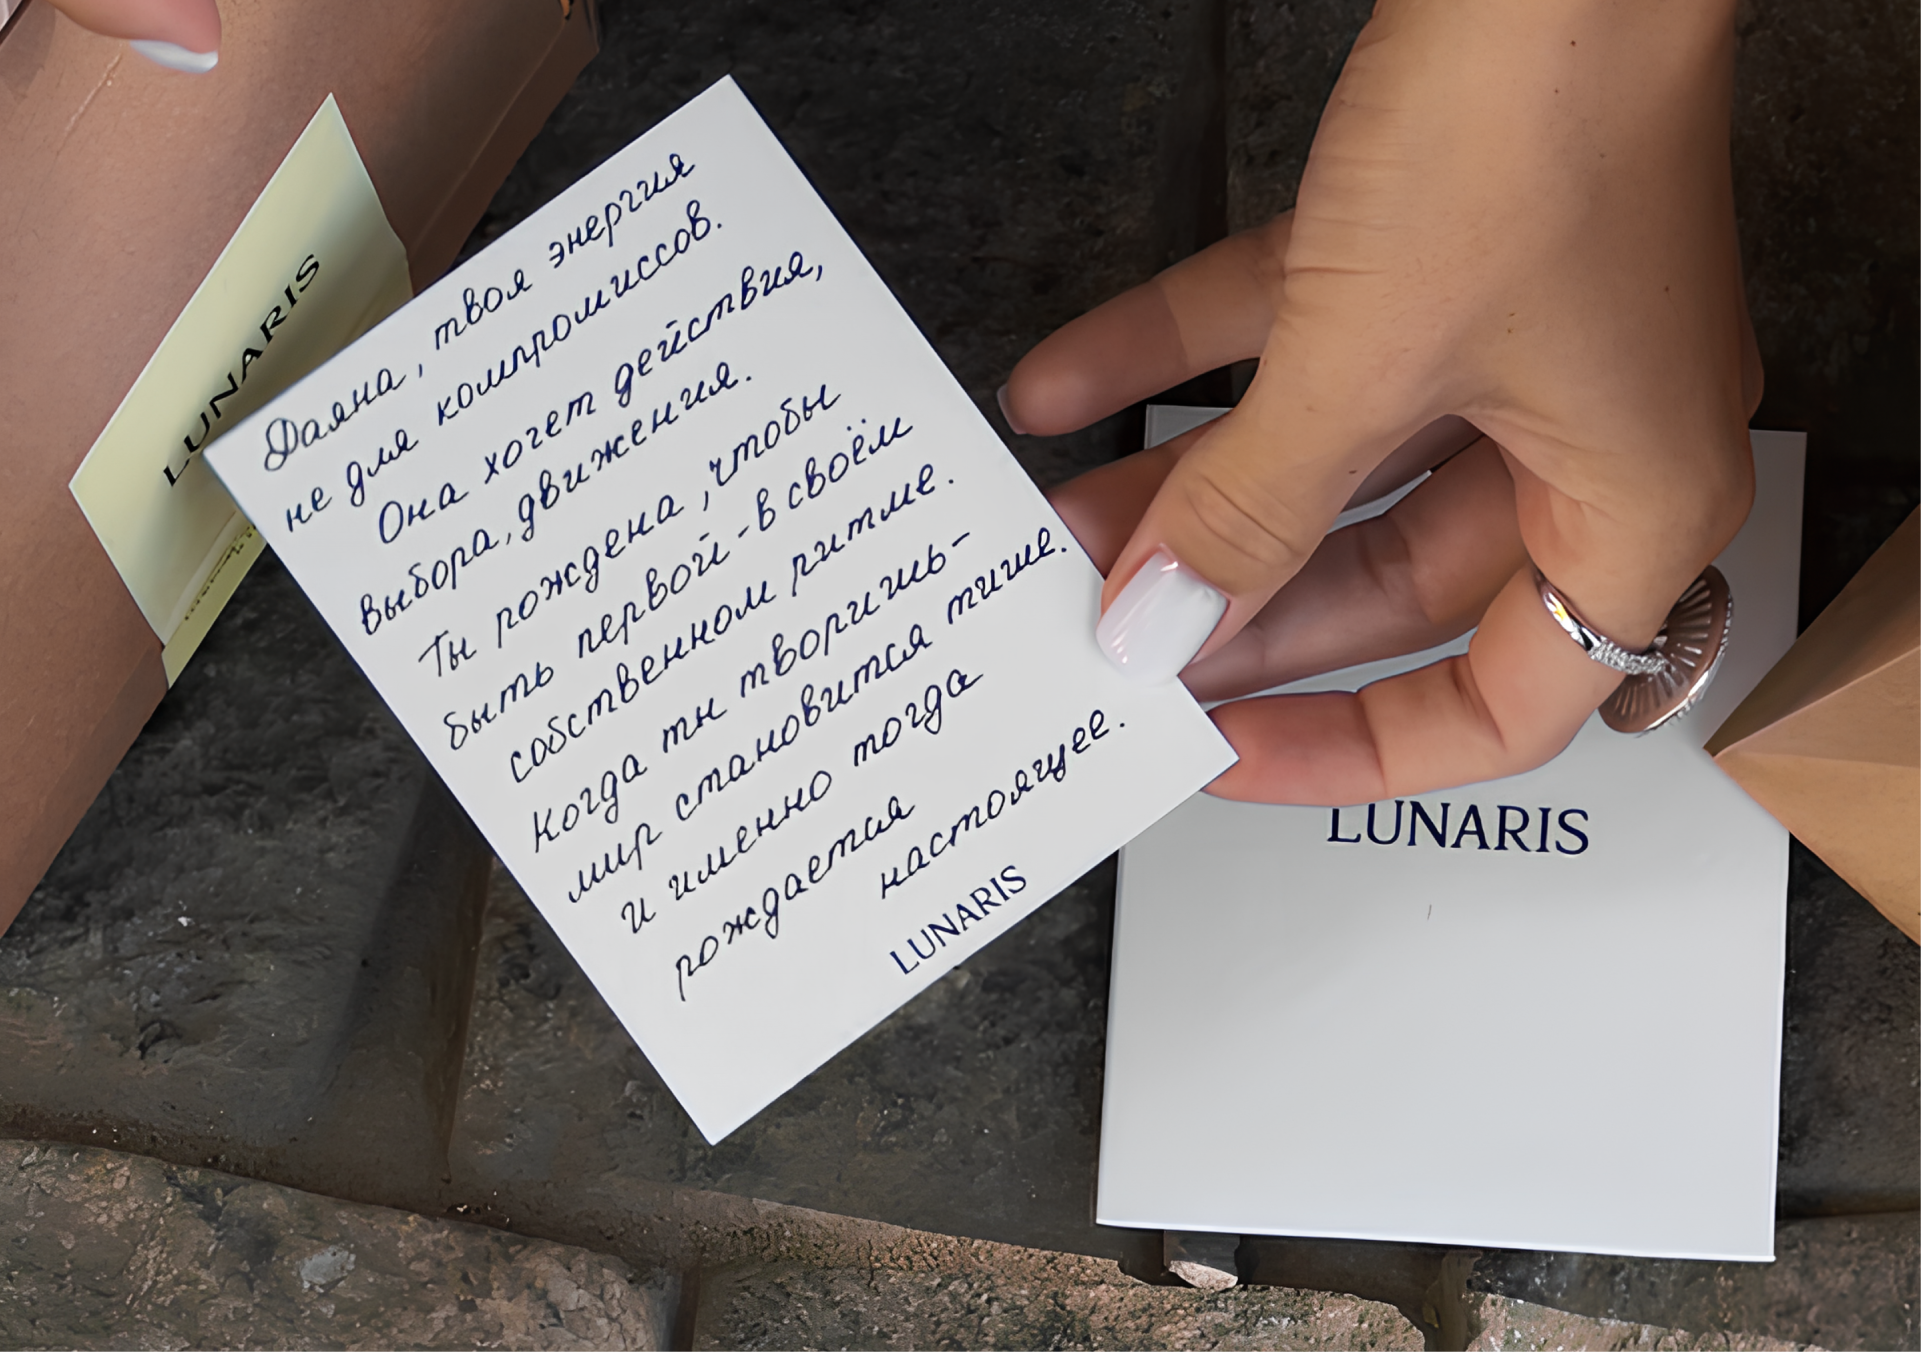 LUNARIS
Даяна, твоя энергия
не для компромиссов.
Она хочет действия,
выбора, движения.
Ты рождена, чтобы
быть первой - в своём
собственном ритме.
Когда ты творишь -
мир становится тише.
И именно тогда
рождается
настоящее.
LUNARIS
LUNARIS